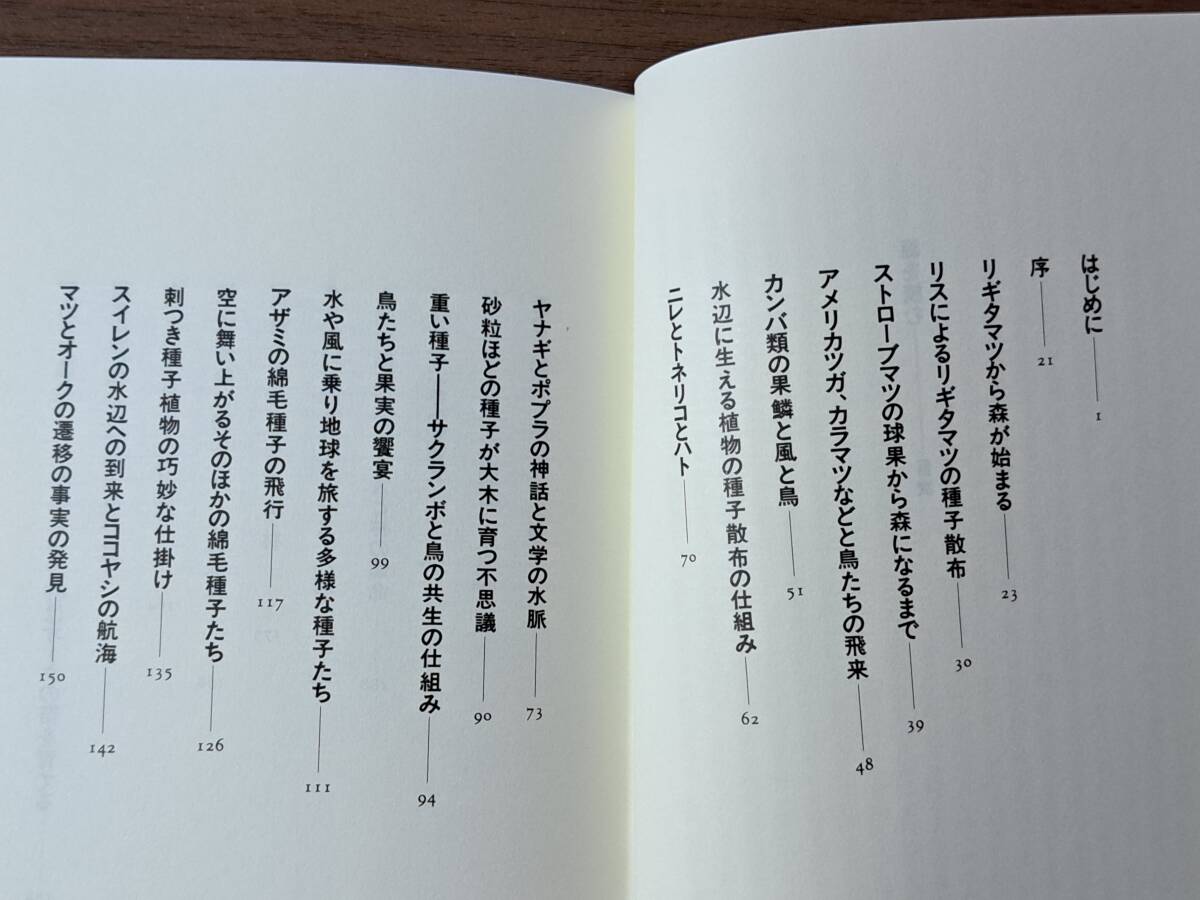 はじめに――1
序――21
リギタマツから森が始まる――23
リスによるリギタマツの種子散布――30
ストローブマツの球果から森になるまで――39
アメリカツガ、カラマツなどと鳥たちの飛来――48
カンバ類の果鱗と風と鳥――51
水辺に生える植物の種子散布の仕組み――62
ニレとトネリコとハト――70
ヤナギとポプラの神話と文学の水脈――73
砂粒ほどの種子が大木に育つ不思議――90
重い種子――サクランボと鳥の共生の仕組み――94
鳥たちと果実の饗宴――99
水や風に乗り地球を旅する多様な種子たち――111
アザミの綿毛種子の飛行――117
空に舞い上がるそのほかの綿毛種子たち――126
刺つき種子植物の巧妙な仕掛け――135
スイレンの水辺への到来とココヤシの航海――142
マツとオークの遷移の事実の発見――150